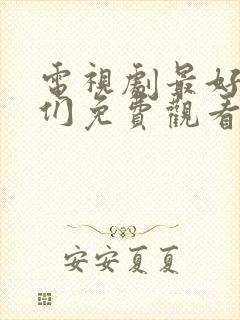 電視劇最好
们免費觀看
安安夏夏